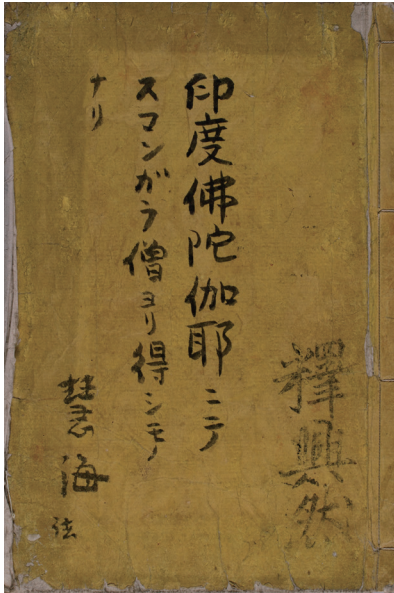 釋興然
印度佛陀伽耶ニテ
スマンガラ僧ヨリ得シモノ
ナリ
慧海